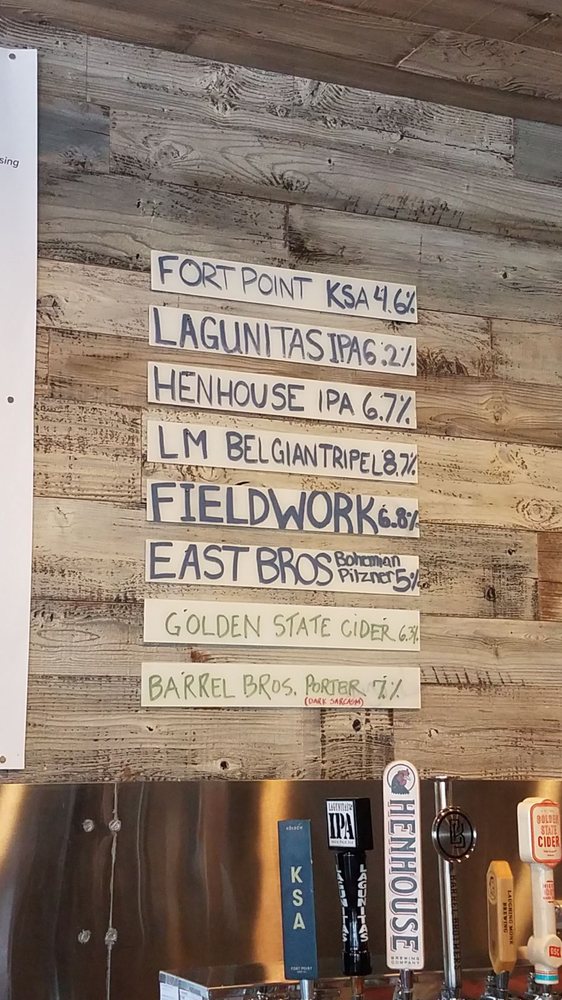 sing
FORT POINT KSA 4.6%
LAGUNITAS IPA 6.2%
HENHOUSE IPA 6.7%
LM BELGIAN TRIPEL 8.7%
FIELDWORK 6.8%
EAST BROS Bohemian
Pilzner 5%
GOLDEN STATE CIDER 6.3%
BARREL BROS. PORTER 7%
(DARK SARCASM)
KSA
FORT POINT
LAGUNITAS
IPA
LAGUNITAS
LAGUNITAS
HENHOUSE
BREWING
COMPANY
B
LAUGHING MONK
BREWING
GOLDEN
STATE
CIDER
GSC